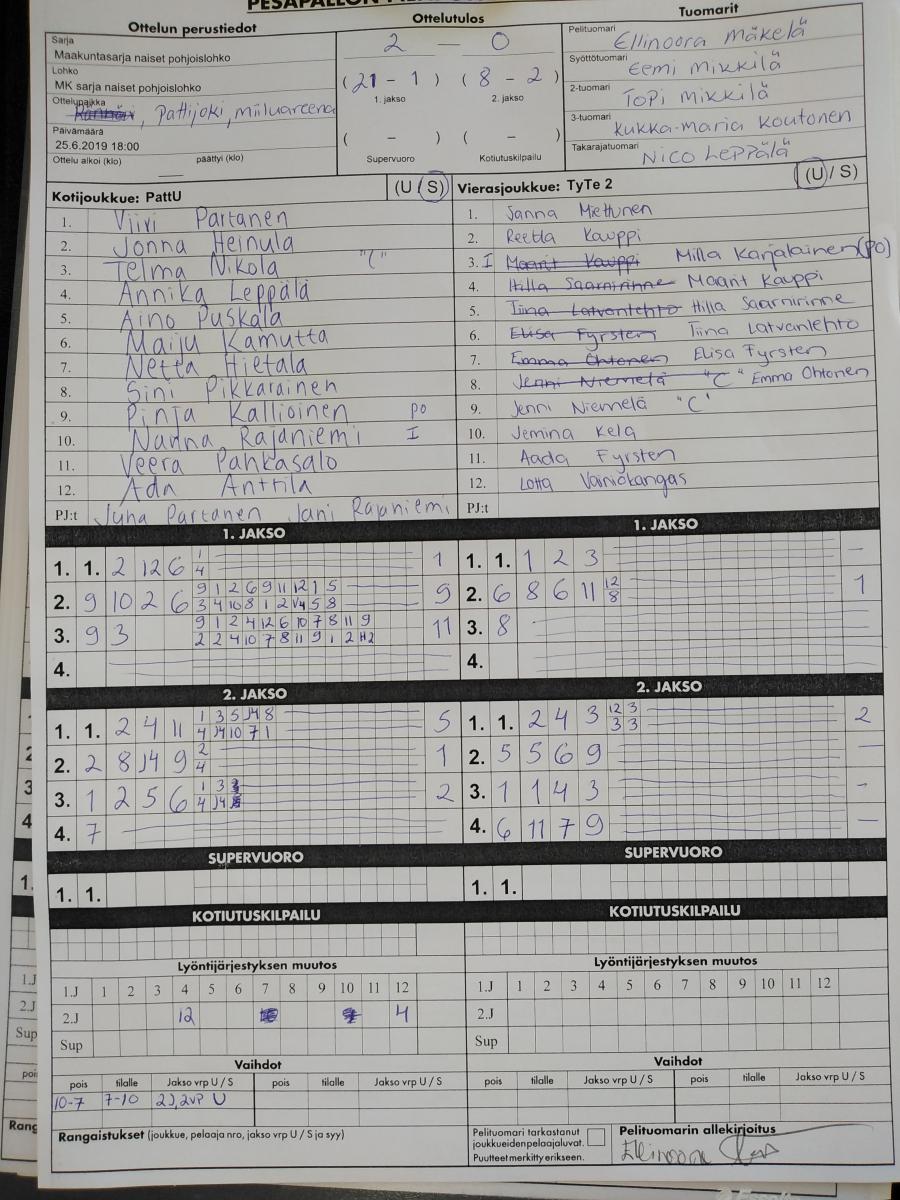 Ottelun perustiedot
Ottelutulos
Tuomarit
Sarja
Maakuntasarja naiset pohjoislohko
Lohko
MK sarja naiset pohjoislohko
Ottelupaikka
, Pattijoki, miiluareena
Päivämäärä
25.6.2019 18:00
Ottelu alkoi (klo) päättyi (klo)
2 — 0
(21 - 1) (8 - 2)
1. jakso 2. jakso
( - ) ( - )
Supervuoro Kotiutuskilpailu
Pelituomari Ellinoora Mäkelä
Syöttötuomari Eemi Mikkilä
2-tuomari Topi Mikkilä
3-tuomari Kukka-Maria Koutonen
Takarajatuomari Nico Leppälä
Kotijoukkue: PattU (U / S)
1. Viivi Partanen
2. Jonna Heinula
3. Telma Nikola "C"
4. Annika Leppälä
5. Aino Puskala
6. Maiju Kamutta
7. Netta Hietala
8. Sini Pikkarainen
9. Pinja Kallioinen PO
10. Nanna Rajaniemi I
11. Veera Pahkasalo
12. Ada Anttila
PJ:t Juha Partanen Jani Rajaniemi
Vierasjoukkue: TyTe 2 (U / S)
1. Sanna Miettunen
2. Reetta Kauppi
3. I Maarit Kauppi Milla Karjalainen (PO)
4. Hilla Saarnirinne Maarit Kauppi
5. Tiina Latvanlehto Hilla Saarnirinne
6. Elisa Fyrsten Tiina Latvanlehto
7. Emma Ohtonen Elisa Fyrsten
8. Jenni Niemelä "C" Emma Ohtonen
9. Jenni Niemelä "C"
10. Jemina Kela
11. Aada Fyrsten
12. Lotta Vainiokangas
PJ:t
1. JAKSO
1. 1. 2 12 6 1 1
4
2. 9 10 2 6 9 1 2 6 9 11 12 1 5 9
3 4 10 8 1 2 5 8
3. 9 3 9 1 2 4 12 6 10 7 8 11 9 11
2 2 4 10 7 8 11 9 1 2
4.
1. JAKSO
1. 1. 1 2 3 –
2. 6 8 6 11 12 1
8
3. 8
4.
2. JAKSO
1. 1. 2 4 11 1 3 5 J4 8 5
4 J4 10 7 1
2. 2 8 J4 9 2 1
4
3. 1 2 5 6 1 3 2
4 J4
4. 7
2. JAKSO
1. 1. 2 4 3 12 3 2
3 3
2. 5 5 6 9 –
3. 1 1 4 3 -
4. 6 11 7 9 –
SUPERVUORO
1. 1.
SUPERVUORO
1. 1.
KOTIUTUSKILPAILU
KOTIUTUSKILPAILU
Lyöntijärjestyksen muutos
1.J 1 2 3 4 5 6 7 8 9 10 11 12
2.J 12 4
Sup
Lyöntijärjestyksen muutos
1.J 1 2 3 4 5 6 7 8 9 10 11 12
2.J
Sup
Vaihdot
pois tilalle Jakso vrp U / S pois tilalle Jakso vrp U / S
10-7 7-10 2J,2vp U
Vaihdot
pois tilalle Jakso vrp U / S pois tilalle Jakso vrp U / S
Rangaistukset (joukkue, pelaaja nro, jakso vrp U / S ja syy)
Pelituomari tarkastanut
joukkueiden pelaajaluvat.
Puutteet merkitty erikseen.
Pelituomarin allekirjoitus
Ellinoora